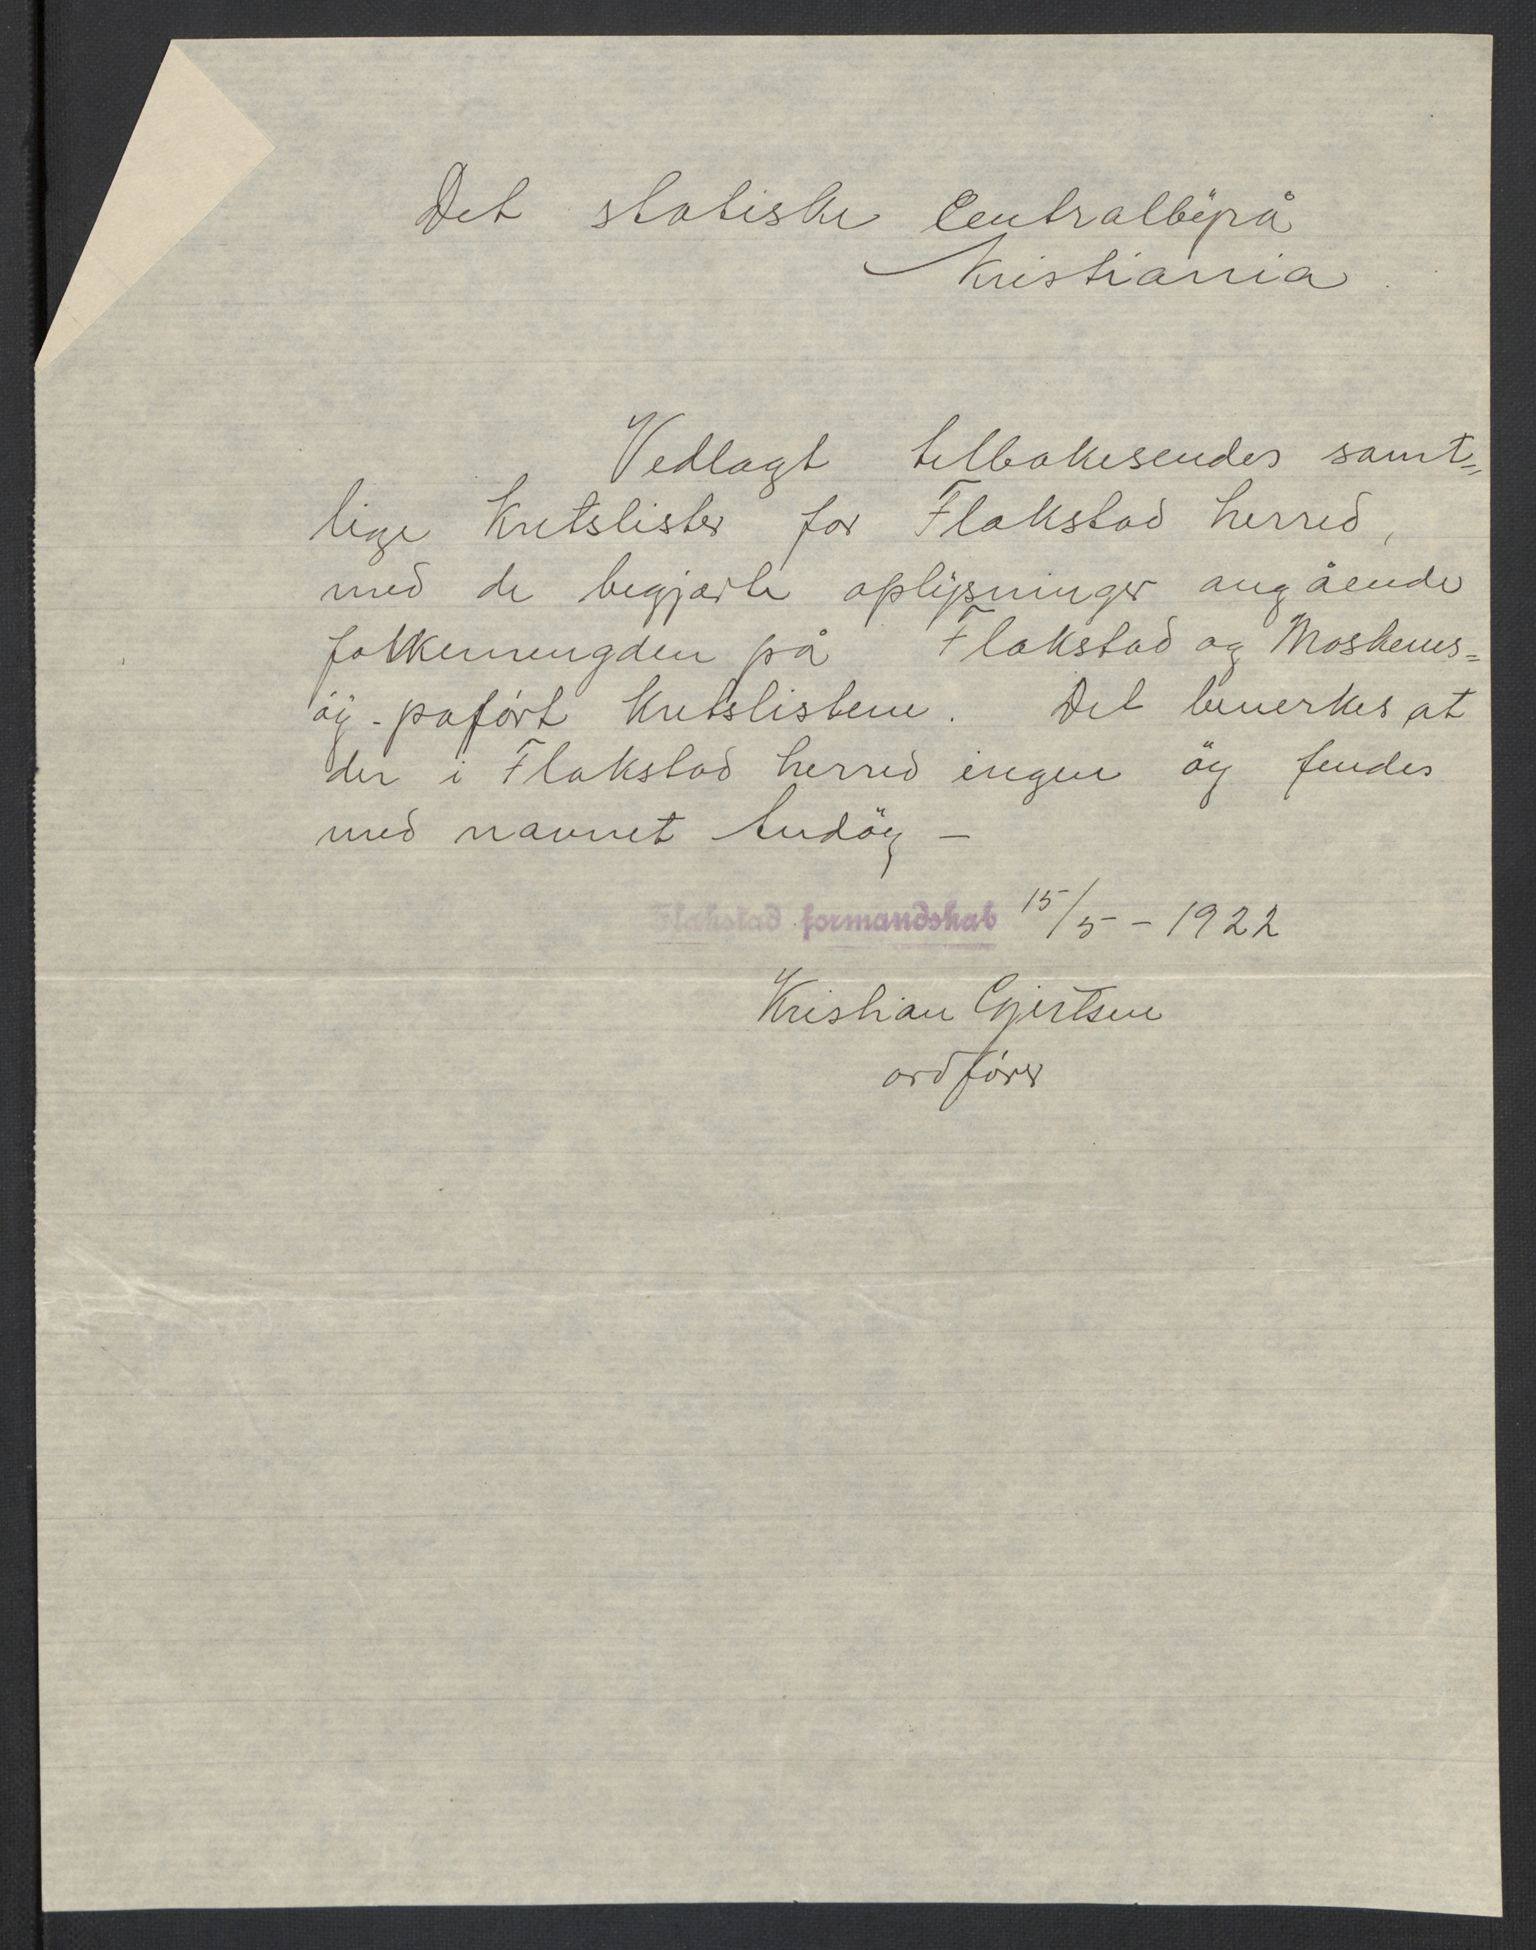 Det statiske Centralbyrå
Kristiania
Vedlagt tilbakesendes samt=
lige kretslister for Flakstad herred,
med de begjærte oplysninger angående
folkemengden på Flakstad og Moskenes=
øy - paført kretslistene. Det bemerkes at
der i Flakstad herred ingen øy findes
med navnet Andøy -
Flakstad formandskab 15/5 - 1922
Kristian Gjertsen
ordfører